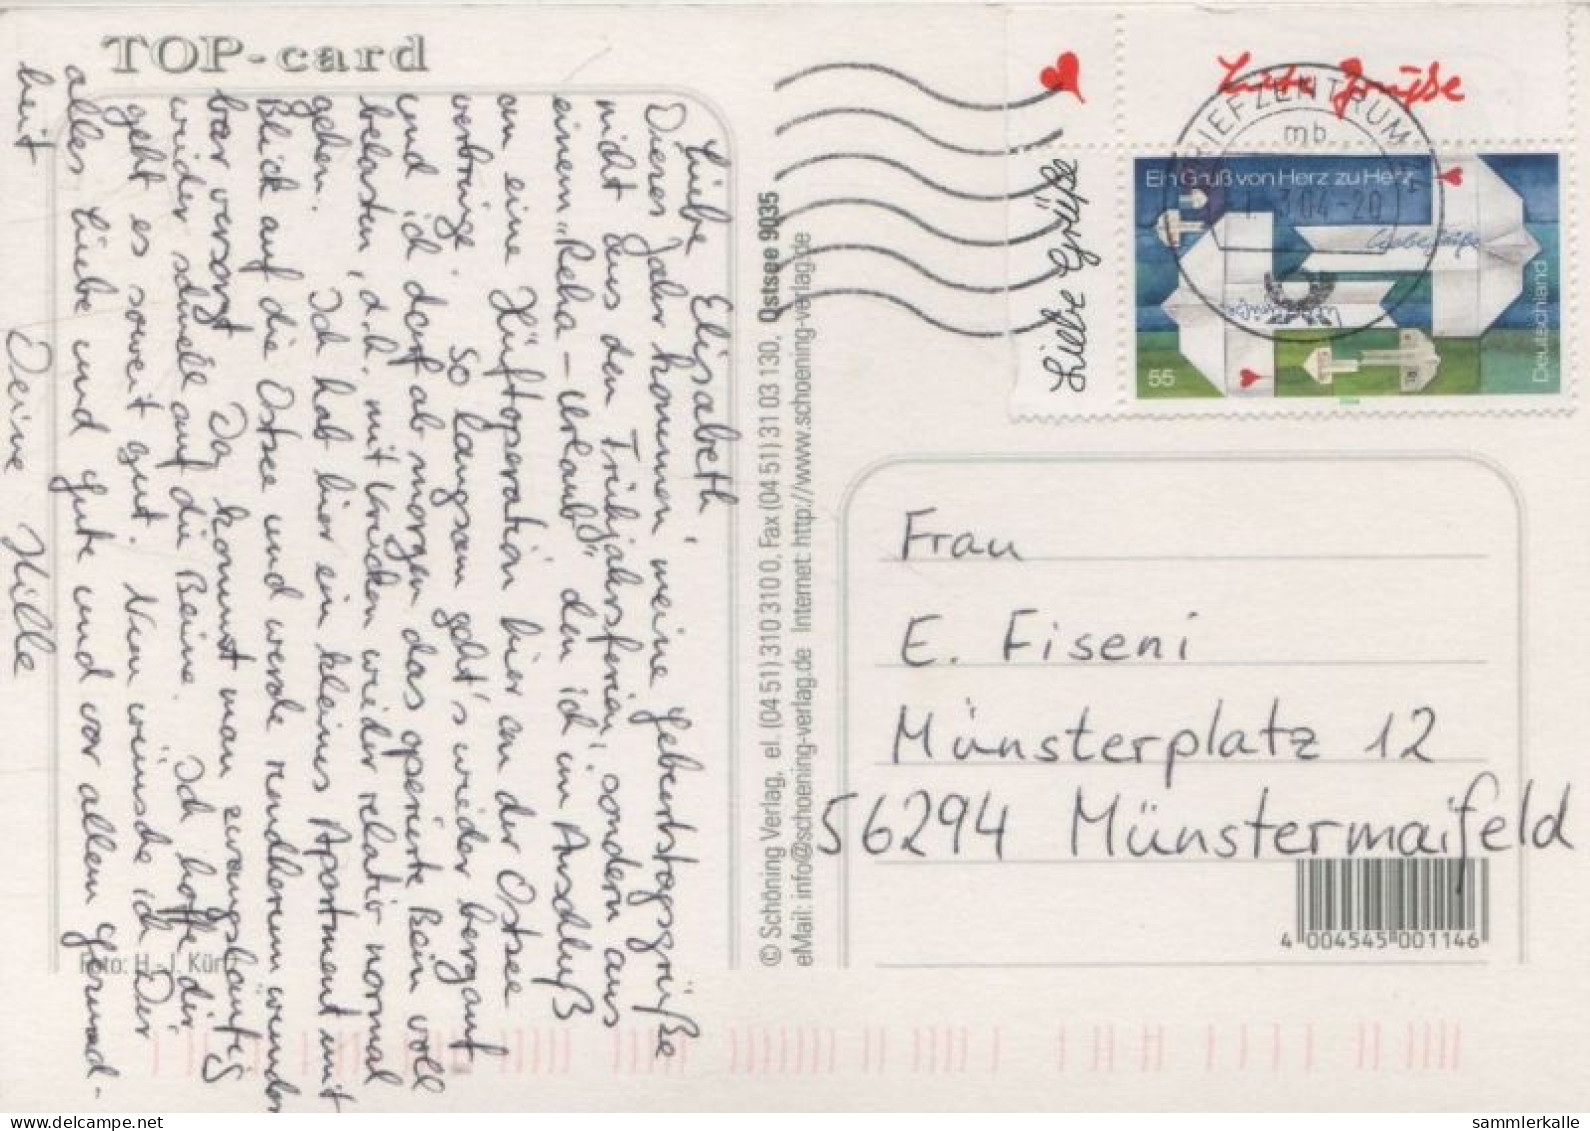 TOP-card
Liebe Elisabeth,
Dieses Jahr kommen meine Geburtstagsgrüße
nicht aus den Frühjahrsferien, sondern aus
einem „Reha-Urlaub“ den ich im Anschluß
an eine Hüftoperation hier an der Ostsee
verbringe. So langsam geht's wieder bergauf
und ich darf ab morgen das operierte Bein voll
belasten, d.h. mit Krücken wieder relativ normal
gehen. Ich hab hier ein kleines Apartment mit
Blick auf die Ostsee und werde rundherum wunder
bar versorgt. Da kommt man zwangsläufig
wieder schnell auf die Beine. Ich hoffe dir
geht es soweit gut. Nun wünsche ich Dir
alles Liebe und Gute und vor allem Gesund-
heit
Deine Hille
Foto: H.-J. Kürtz
© Schöning Verlag, el. (04 51) 310 310 0, Fax (04 51) 31 03 130, Ostsee 9035
eMail: info@schoening-verlag.de Internet: http://www.schoening-verlag.de
Liebe Grüße
Liebe Grüße
BRIEFZENTRUM
mb
3.04-20
Ein Gruß von Herz zu Herz
Liebe Grüße
55
Deutschland
Frau
E. Fiseni
Münsterplatz 12
56294 Münstermaifeld
4 004545 001146
sammlerkalle
www.delcampe.net